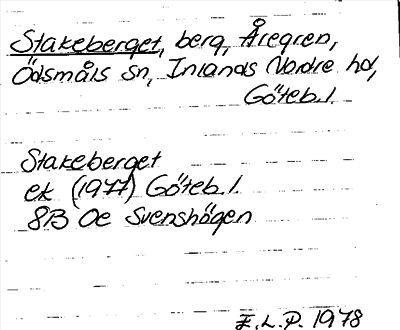 Stakeberget, berg, Åregren,
Ödsmåls sn, Inlands Nordre hd,
Göteb.l.
Stakeberget
ek (1977) Göteb.l.
8B 0e Svenshögen
E.L.P. 1978